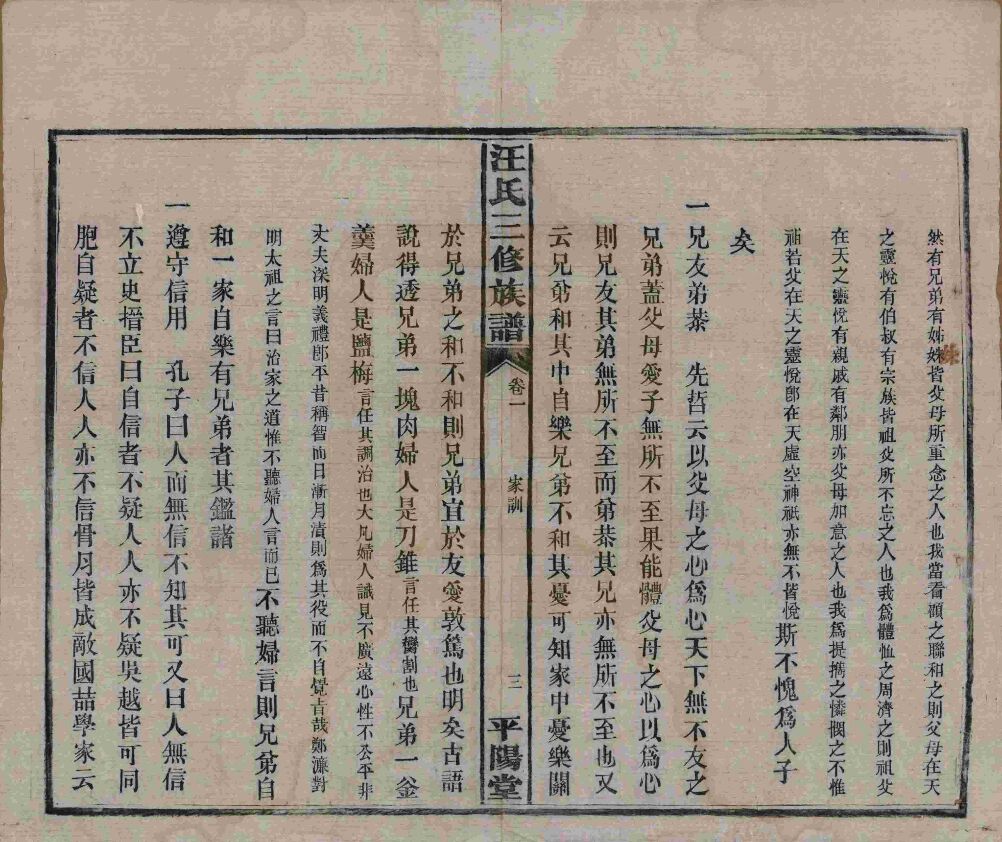 然有兄弟有姊妹皆父母所重念之人也我當看顧之聯和之則父母在天
之靈悅有伯叔有宗族皆祖父所不忘之人也我爲體恤之周濟之則祖父
在天之靈悅有親戚有鄰朋亦父母加意之人也我爲提攜之憐憫之不惟
祖若父在天之靈悅卽在天虛空神祇亦無不皆悅斯不愧爲人子
矣
一兄友弟恭 先哲云以父母之心爲心天下無不友之
兄弟蓋父母愛子無所不至果能體父母之心以爲心
則兄友其弟無所不至而弟恭其兄亦無所不至也又
云兄弟和其中自樂兄弟不和其憂可知家中憂樂關
汪氏三修族譜 卷一 家訓 三 平陽堂
於兄弟之和不和則兄弟宜於友愛敦篤也明矣古語
說得透兄弟一塊肉婦人是刀錐言任其臠割也兄弟一釡
羹婦人是鹽梅言任其調治也大凡婦人識見不廣遠心性不公平非
丈夫深明義禮卽平昔稱智而日漸月漬則爲其役而不自覺吉哉鄭濂對
明太祖之言曰治家之道惟不聽婦人言而已不聽婦言則兄弟自
和一家自樂有兄弟者其鑑諸
一遵守信用 孔子曰人而無信不知其可又曰人無信
不立史搢臣曰自信者不疑人人亦不疑吳越皆可同
胞自疑者不信人人亦不信骨月皆成敵國喆學家云